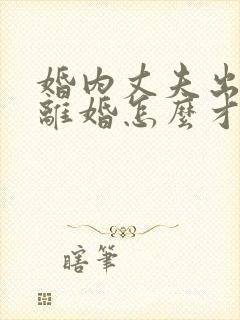 婚内丈夫出
離婚怎麼才
瞎筆